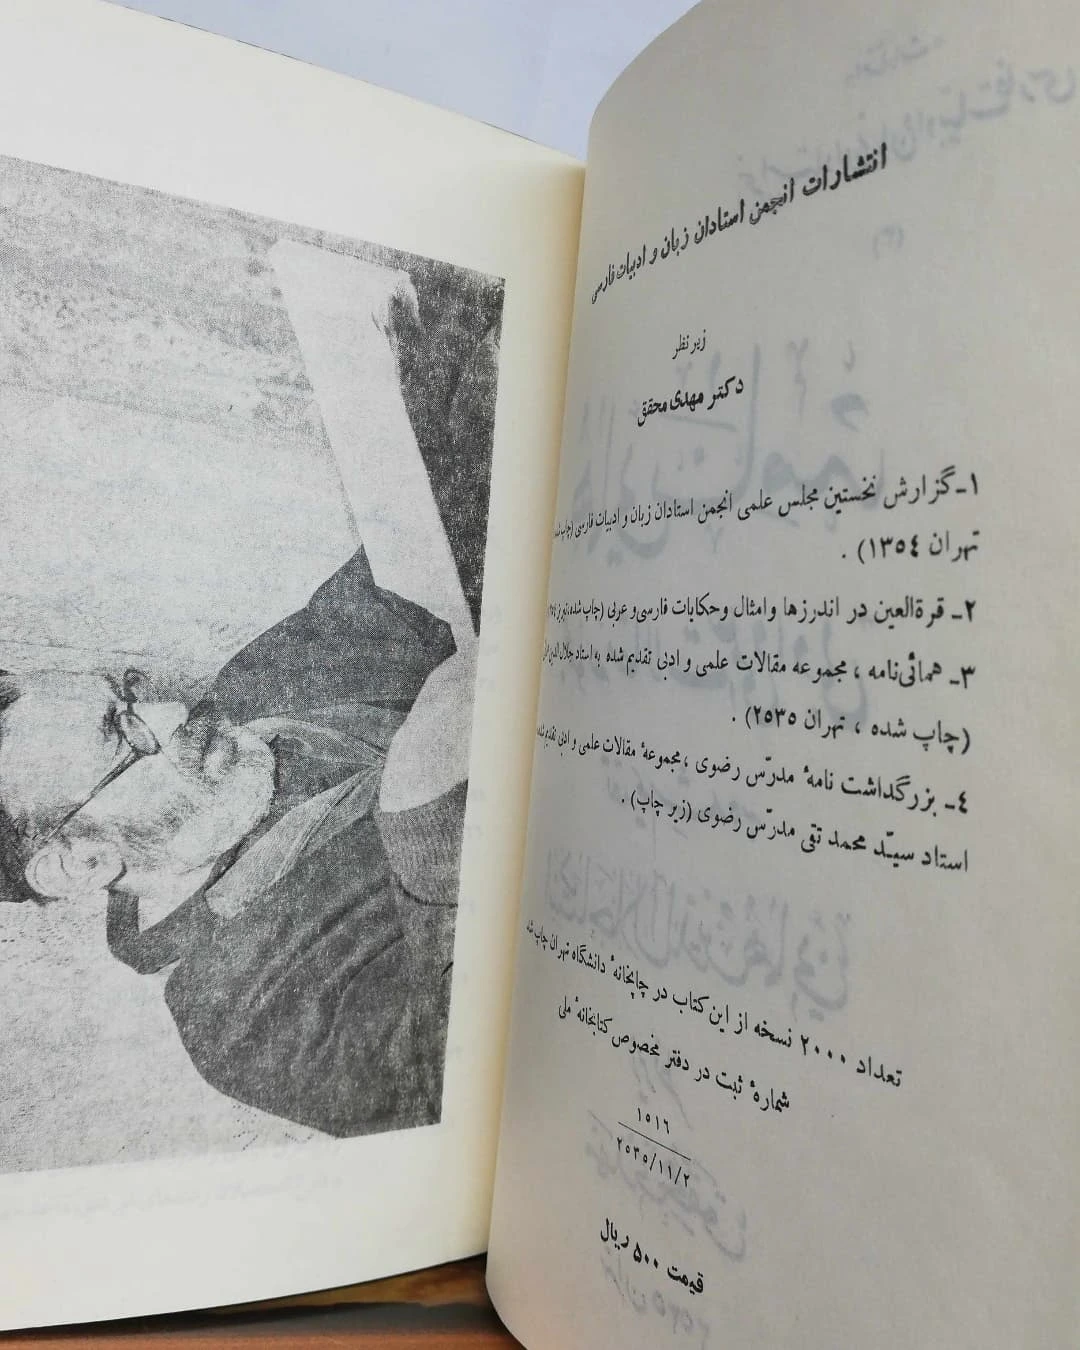 انتشارات انجمن استادان زبان و ادبیات فارسی
زیر نظر
دکتر مهدی محقق
۱ـ گزارش نخستین مجلس علمی انجمن استادان زبان و ادبیات فارسی (چاپ شده
تهران ۱۳۵٤) .
۲ـ قرةالعین در اندرزها و امثال و حکایات فارسی و عربی (چاپ شده، تبریز
۳ـ همائی‌نامه ، مجموعه مقالات علمی و ادبی تقدیم شده به استاد جلال‌الدین
(چاپ شده ، تهران ۲۵۳۵) .
٤ـ بزرگداشت نامهٔ مدرّس رضوی ، مجموعهٔ مقالات علمی و ادبی تقدیم شده
استاد سیّد محمد تقی مدرّس رضوی (زیر چاپ) .
تعداد ۲۰۰۰ نسخه از این کتاب در چاپخانهٔ دانشگاه تهران چاپ شد
شمارهٔ ثبت در دفتر مخصوص کتابخانهٔ ملی
۱۵۱٦
۲۵۳۵/۱۱/۲
قیمت ۵۰۰ ریال